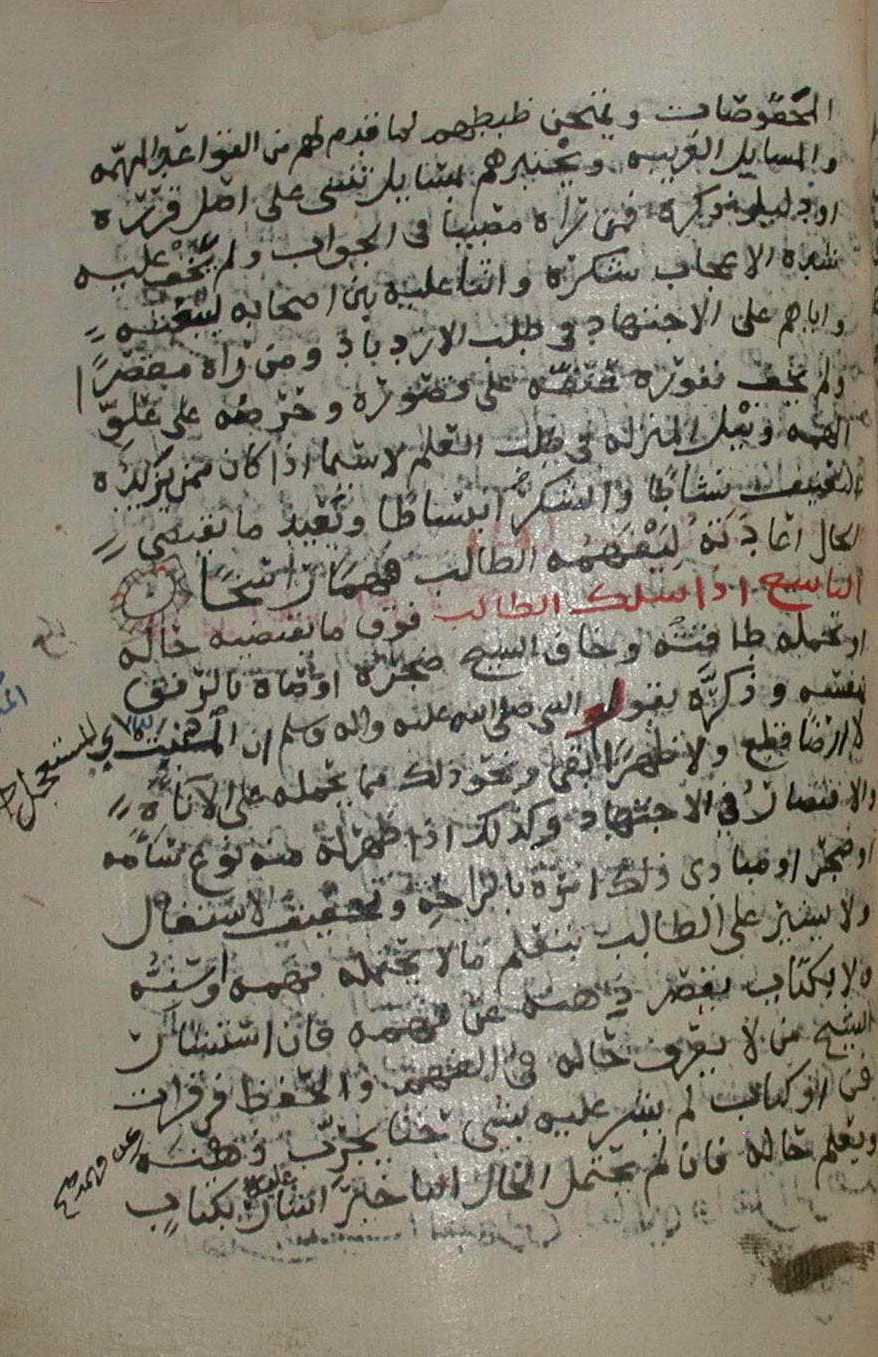 المحفوضات ويمتحن ظبطهم لما قدم لهم من القواعد المهمه
والمسايل الغريبه ويختبرهم بمسايل تبنى على اصل قرره
او دليل ذكره فمن رآه مصيبا في الجواب ولم يخف عليه
شده الاعجاب شكره واثنا عليه بين اصحابه ليبعثه
واياهم على الاجتهاد في طلب الازدياد ومن رآه مقصرًا
ولم يخف نفوره عنفه على قصوره وحرضه على علوّ
الهمه ونيل المنزله في طلب العلم لاسيما اذا كان ممن يزيده
التعنيف نشاطًا والشكر انبساطًا ويعيد ما يقتضي
الحال اعادته ليفهمه الطالب فهمًا راسخًا
التاسع اذا سلك الطالب فوق ما يقتضيه حاله
او تحمله طاقته وخاف الشيخ ضجره اوصاه بالرفق
بنفسه وذكره بقول النبي صلى الله عليه واله وسلم ان المنبت
لا ارضًا قطع ولا ظهرًا ابقى ونحو ذلك مما يحمله على الاناة
والاقتصاد في الاجتهاد وكذلك اذا ظهر له منه نوع سآمه
او ضجر او مبادى ذلك امره بالراحه وتخفيف الاشتغال
ولا يشير على الطالب بتعلم مالا يحتمله فهمه او سنه
ولا بكتاب يقصر ذهنه عن فهمه فان استشار
الشيخ من لا يعرف حاله في الفهم والحفظ في قرات
فن او كتاب لم يشر عليه بشي حتا يجرب ذهنه
ويعلم حاله فان لم يحتمل الحال التاخير اشار عليه بكتاب
المستعجل